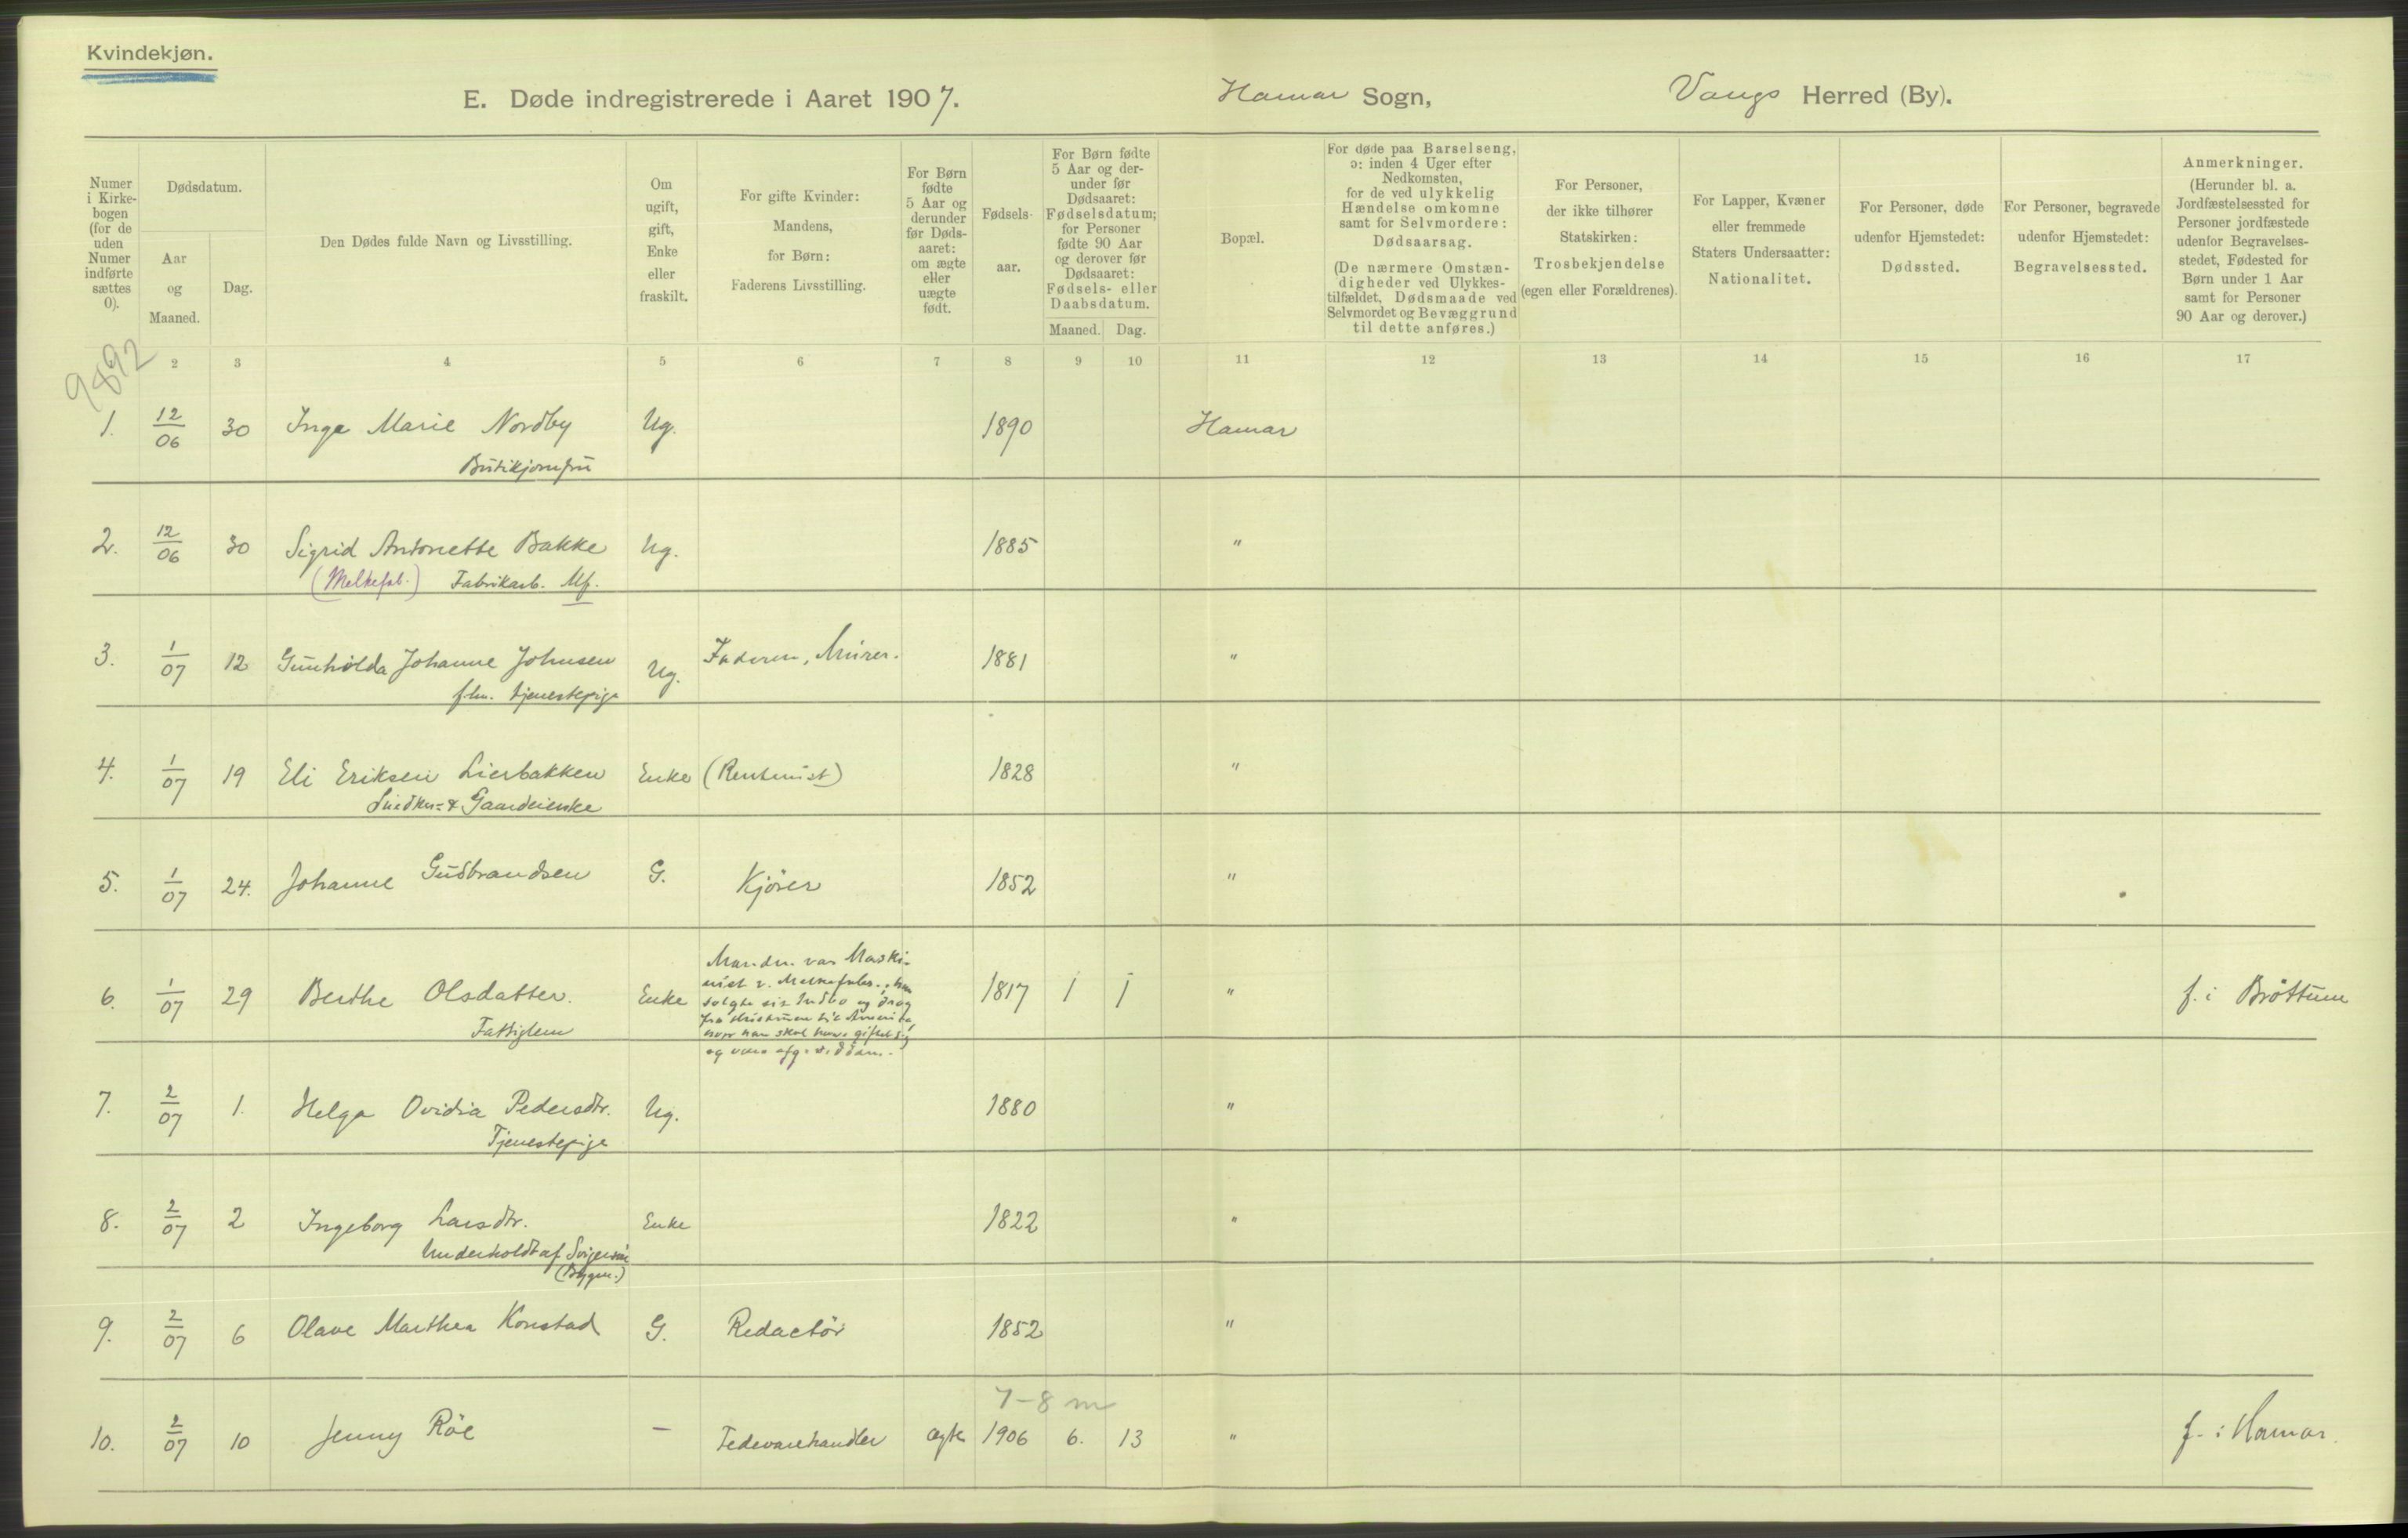 Kvindekjøn.
E. Døde indregistrerede i Aaret 1907. Hamar Sogn, Vangs Herred (By).
Numer i Kirke-bogen (for de uden Numer indførte sættes 0).
Dødsdatum.
Aar og Maaned.
Dag.
Den Dødes fulde Navn og Livsstilling.
Om ugift, gift, Enke eller fraskilt.
For gifte Kvinder: Mandens, for Børn: Faderens Livsstilling.
For Børn fødte 5 Aar og derunder før Døds-aaret: om ægte eller uægte født.
Fødsels-aar.
For Børn fødte 5 Aar og der-under før Dødsaaret: Fødselsdatum; for Personer fødte 90 Aar og derover før Dødsaaret: Fødsels- eller Daabsdatum.
Maaned. Dag.
Bopæl.
For døde paa Barselseng, ɔ: inden 4 Uger efter Nedkomsten, for de ved ulykkelig Hændelse omkomne samt for Selvmordere: Dødsaarsag. (De nærmere Omstæn-digheder ved Ulykkes-tilfældet, Dødsmaade ved Selvmordet og Bevæggrund til dette anføres.)
For Personer, der ikke tilhører Statskirken: Trosbekjendelse (egen eller Forældrenes).
For Lapper, Kvæner eller fremmede Staters Undersaatter: Nationalitet.
For Personer, døde udenfor Hjemstedet: Dødssted.
For Personer, begravede udenfor Hjemstedet: Begravelsessted.
Anmerkninger. (Herunder bl. a. Jordfæstelsessted for Personer jordfæstede udenfor Begravelses-stedet, Fødested for Børn under 1 Aar samt for Personer 90 Aar og derover.)
9892
2 3 4 5 6 7 8 9 10 11 12 13 14 15 16 17
1. 12/06 30 Inga Marie Nordby Ug. 1890 Hamar
Butikjomfru
2. 12/06 30 Sigrid Antonette Bakke Ug. 1885 "
(Melkefab.) Fabrikarb. Mf.
3. 1/07 12 Gunhilda Johanne Johnsen Ug. Faderen, Murer. 1881 "
fhv. tjenestepige
4. 1/07 19 Eli Eriksen Lierbakken Enke (Rentenist) 1828 "
Snedker= & Gaardeierske
5. 1/07 24. Johanne Gudbrandsen G. Kjörer 1852 "
Manden var Maski-
nist v. Melkefabr.; han
6. 1/07 29 Berthe Olsdatter. Enke solgte sit Indbo og drog 1817 1 1 " f. i Bröttum
Fattiglem fra Hustruen til Amerika,
hvor han skal have giftet sig
og være afg. ved döden.
7. 2/07 1. Helga Ovidia Pedersdtr. Ug. 1880 "
Tjenestepige
8. 2/07 2 Ingeborg Larsdtr. Enke 1822 "
Underholdt af Svigersön
(Bygm.)
9. 2/07 6 Olave Marthea Konstad G. Redactör 1852 "
7-8 m
10. 2/07 10 Jenny Röe — Fedevarehandler ægte 1906 6. 13 " f. i Hamar.